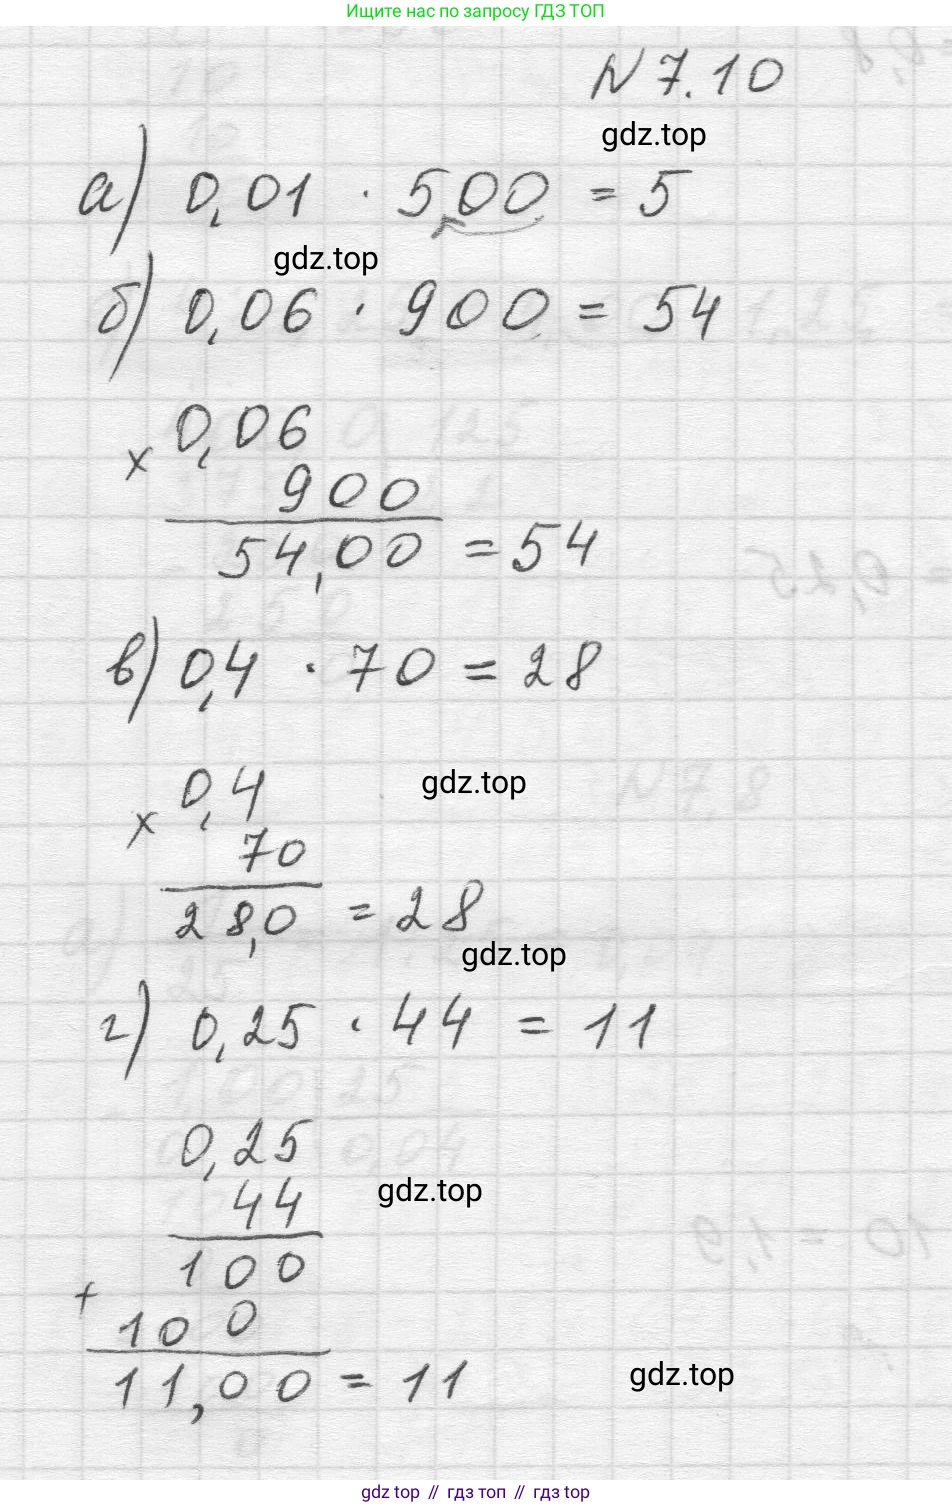 Ищите нас по запросу ГДЗ ТОП
N 7.10
gdz.top
а) 0,01 · 500 = 5
gdz.top
б) 0,06 · 900 = 54
x 0,06
900
54,00 = 54
в) 0,4 · 70 = 28
x 0,4
gdz.top
70
28,0 = 28
gdz.top
г) 0,25 · 44 = 11
0,25
44
gdz.top
100
+
100
11,00 = 11
gdz.top
gdz top // гдз топ // gdz.top